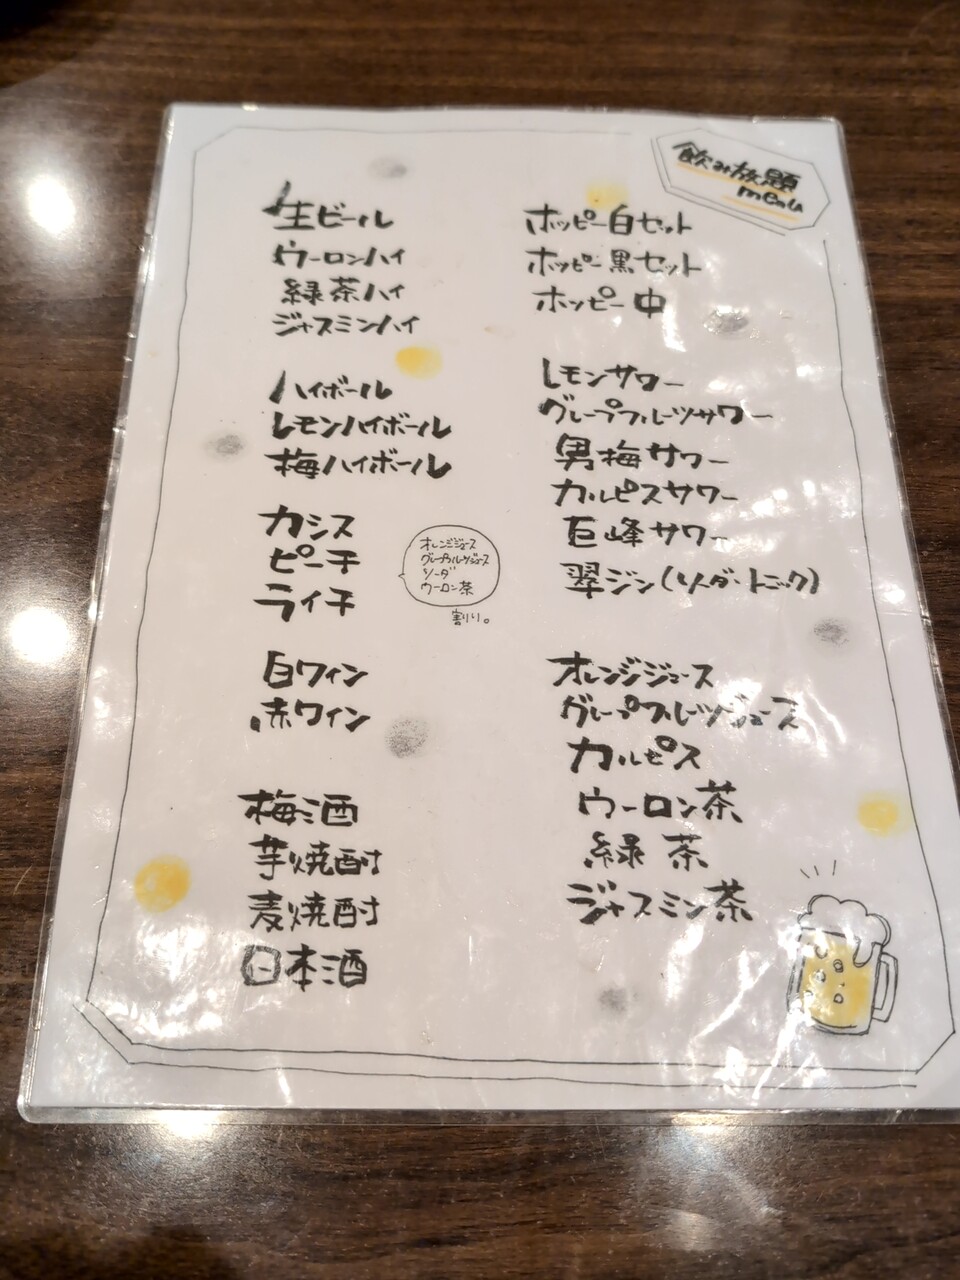 飲み放題
menu
生ビール
ウーロンハイ
緑茶ハイ
ジャスミンハイ
ハイボール
レモンハイボール
梅ハイボール
カシス
ピーチ
ライチ
オレンジジュース
グレープフルーツジュース
ソーダ
ウーロン茶
割り。
白ワイン
赤ワイン
梅酒
芋焼酎
麦焼酎
日本酒
ホッピー白セット
ホッピー黒セット
ホッピー中
レモンサワー
グレープフルーツサワー
男梅サワー
カルピスサワー
巨峰サワー
翠ジン(ソーダ・トニック)
オレンジジュース
グレープフルーツジュース
カルピス
ウーロン茶
緑茶
ジャスミン茶